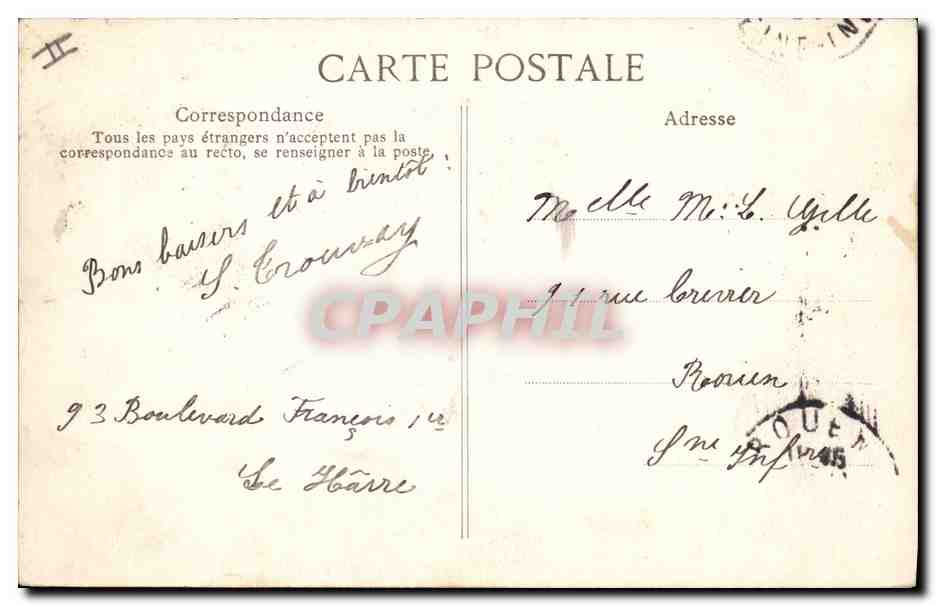 II
CARTE POSTALE
Correspondance
Tous les pays étrangers n'acceptent pas la
correspondance au recto, se renseigner à la poste
Bons baisers et à bientôt!
S. Trouvay
93 Boulevard François 1er
Le Hâvre
Adresse
Melle M. L.
91 rue Crevier
Rouen
Sne Infre
ROUEN
CPAPHIL